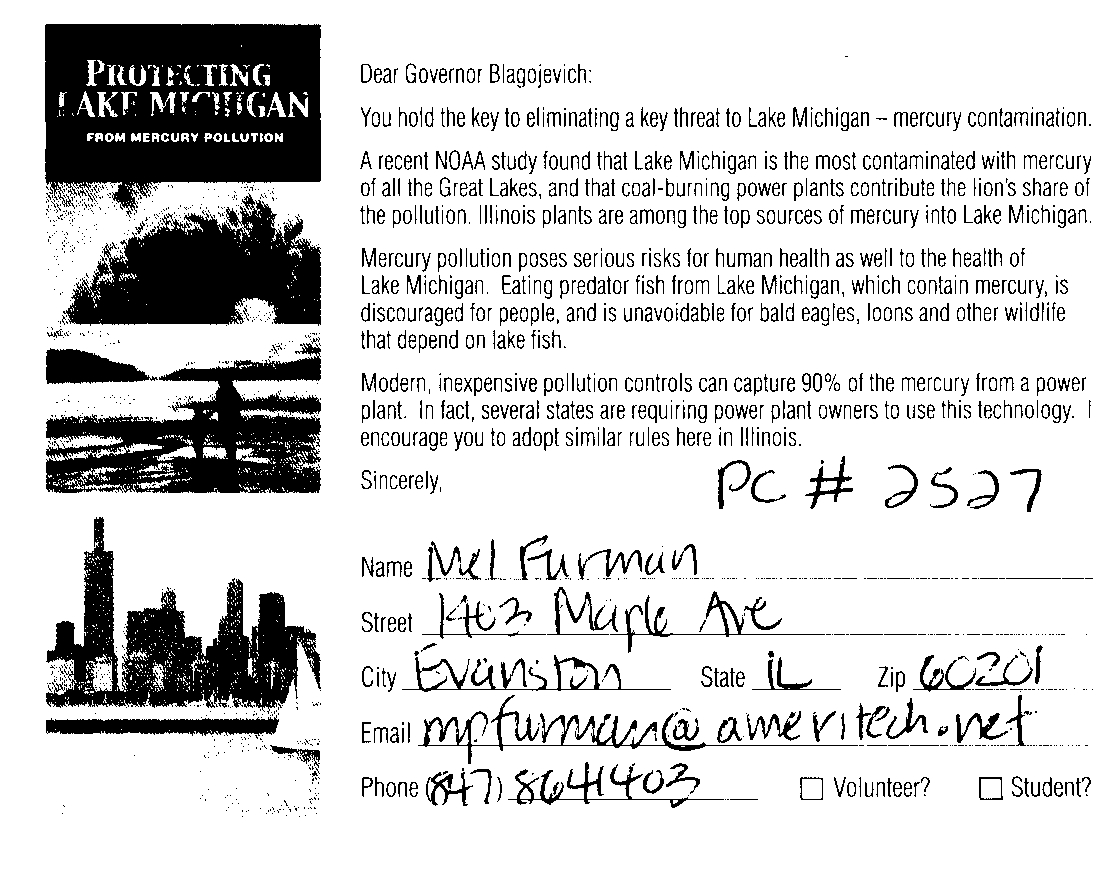 PROTECTING
LAKE MICHIGAN
FROM MERCURY POLLUTION
Dear Governor Blagojevich:
You hold the key to eliminating a key threat to Lake Michigan – mercury contamination.
A recent NOAA study found that Lake Michigan is the most contaminated with mercury
of all the Great Lakes, and that coal-burning power plants contribute the lion's share of
the pollution. Illinois plants are among the top sources of mercury into Lake Michigan.
Mercury pollution poses serious risks for human health as well to the health of
Lake Michigan. Eating predator fish from Lake Michigan, which contain mercury, is
discouraged for people, and is unavoidable for bald eagles, loons and other wildlife
that depend on lake fish.
Modern, inexpensive pollution controls can capture 90% of the mercury from a power
plant. In fact, several states are requiring power plant owners to use this technology. I
encourage you to adopt similar rules here in Illinois.
Sincerely,
PC # 2527
Name Mel Furman
Street 1403 Maple Ave
City Evanston State IL Zip 60201
Email mpfurman@ameritech.net
Phone (847) 8641403 Volunteer? Student?